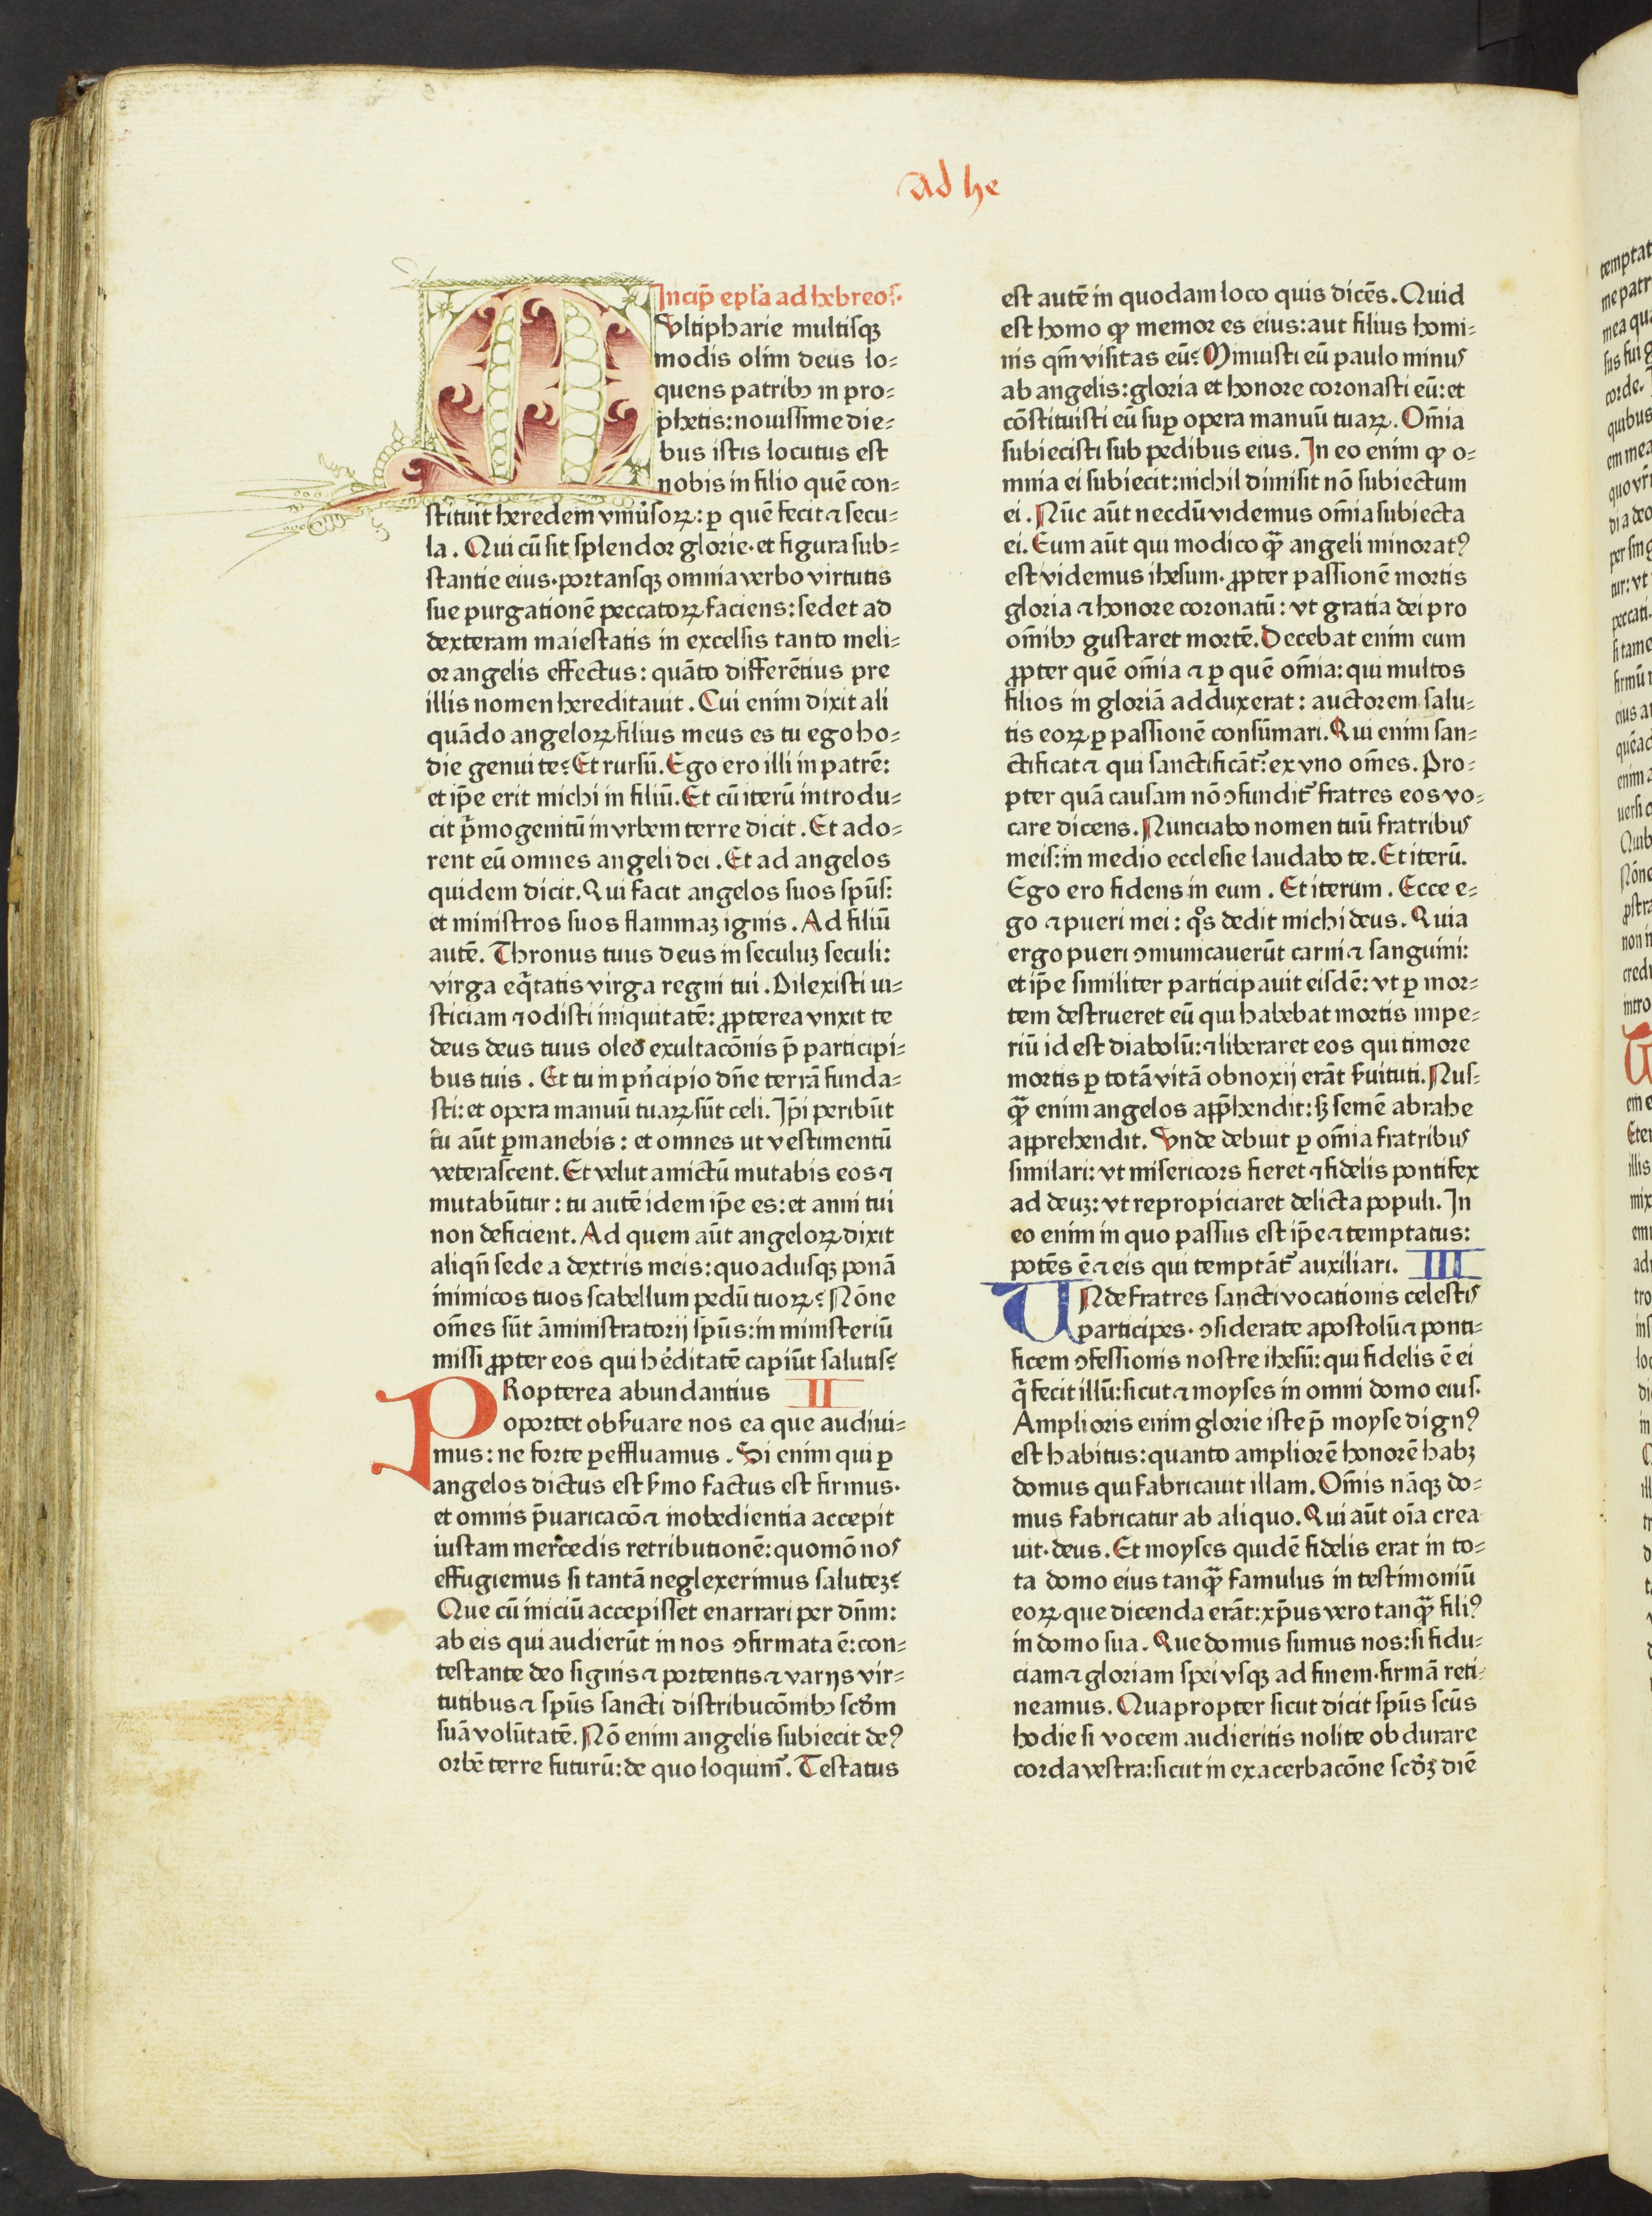 Ad he
Incip̄ ep̄la ad hebreos.
MVltipharie multisqꝫ
modis olim deus lo⸗
quens patribꝰ in pro⸗
phetis: nouissime die⸗
bus istis locutus est
nobis in filio quē con⸗
stituit heredem vniūsoꝝ: ꝑ quē fecit ⁊ secu⸗
la. Qui cū sit splendor glorie· et figura sub⸗
stantie eius· portansqꝫ omnia verbo virtutis
sue purgationē peccatoꝝ faciens: sedet ad
dexteram maiestatis in excelsis tanto meli⸗
or angelis effectus: quāto differētius pre
illis nomen hereditauit. Cui enim dixit ali
quādo angeloꝝ filius meus es tu ego ho⸗
die genui te? Et rursū. Ego ero illi in patrē:
et ip̄e erit michi in filiū. Et cū iterū introdu⸗
cit p̄mogenitū in vrbem terre dicit. Et ado⸗
rent eū omnes angeli dei. Et ad angelos
quidem dicit. Qui facit angelos suos spūs:
et ministros suos flammaꝫ ignis. Ad filiū
autē. Thronus tuus deus in seculuꝫ seculi:
virga eq̄tatis virga regni tui. Dilexisti iu⸗
sticiam ⁊ odisti iniquitatē: ꝓpterea vnxit te
deus deus tuus oleo exultacōnis p̄ participi⸗
bus tuis. Et tu in pn̄cipio dn̄e terrā funda⸗
sti: et opera manuū tuaꝝ sūt celi. Ip̄i peribūt
tu aūt ꝑmanebis: et omnes ut vestimentū
veterascent. Et velut amictū mutabis eos ⁊
mutabūtur: tu autē idem ip̄e es: et anni tui
non deficient. Ad quem aūt angeloꝝ dixit
aliqn̄ sede a dextris meis: quoadusqꝫ ponā
inimicos tuos scabellum pedū tuoꝝ? Nōne
om̄es sūt āministratorij spūs: in ministeriū
missi ꝓpter eos qui hēditatē capiūt salutis?
PRopterea abundantius II
oportet obẜuare nos ea que audiui⸗
mus: ne forte ꝑeffluamus. Si enim qui ꝑ
angelos dictus est ẜmo factus est firmus·
et omnis p̄uaricacō ⁊ inobedientia accepit
iustam mercedis retributionē: quomō nos
effugiemus si tantā neglexerimus saluteꝫ?
Que cū iniciū accepisset enarrari per dn̄m:
ab eis qui audierūt in nos ꝯfirmata ē: con⸗
testante deo signis ⁊ portentis ⁊ varijs vir⸗
tutibus ⁊ spūs sancti distribucōnibꝰ scd̄m
suā volūtatē. Nō enim angelis subiecit deꝰ
orbē terre futurū: de quo loquimᷣ. Testatus
est autē in quodam loco quis dicēs. Quid
est homo ꝙ memor es eius: aut filius homi⸗
nis qm̄ visitas eū? Minuisti eū paulo minus
ab angelis: gloria et honore coronasti eū: et
cōstituisti eū suꝑ opera manuū tuaꝝ. Om̄ia
subiecisti sub pedibus eius. In eo enim ꝙ o⸗
mnia ei subiecit: nichil dimisit nō subiectum
ei. Nūc aūt necdū videmus om̄ia subiecta
ei. Eum aūt qui modico qꝫ̄ angeli minoratꝰ
est videmus ihesum· ꝓpter passionē mortis
gloria ⁊ honore coronatū: vt gratia dei pro
om̄ibꝰ gustaret mortē. Decebat enim eum
ꝓpter quē om̄ia ⁊ ꝑ quē om̄ia: qui multos
filios in gloriā adduxerat: auctorem salu⸗
tis eoꝝ ꝑ passionē consūmari. Qui enim san⸗
ctificat ⁊ qui sanctificātᷣ: ex vno om̄es. Pro⸗
pter quā causam nō ꝯfunditᷣ fratres eos vo⸗
care dicens. Nunciabo nomen tuū fratribus
meis: in medio ecclesie laudabo te. Et iterū.
Ego ero fidens in eum. Et iterum. Ecce e⸗
go ⁊ pueri mei: qͦs dedit michi deus. Quia
ergo pueri ꝯmunicauerūt carni ⁊ sanguini:
et ip̄e similiter participauit eisdē: vt ꝑ mor⸗
tem destrueret eū qui habebat mortis impe⸗
riū id est diabolū: ⁊ liberaret eos qui timore
mortis ꝑ totā vitā obnoxij erāt ẜuituti. Nus⸗
qꝫ̄ enim angelos app̄hendit: sꝫ semē abrahe
apprehendit. Vnde debuit ꝑ om̄ia fratribus
similari: vt misericors fieret ⁊ fidelis pontifex
ad deuꝫ: vt repropiciaret delicta populi. In
eo enim in quo passus est ip̄e ⁊ temptatus:
potēs ē ⁊ eis qui temptātᷣ auxiliari. III
VNde fratres sancti vocationis celestis
participes· ꝯsiderate apostolū ⁊ ponti⸗
ficem ꝯfessionis nostre ihesū: qui fidelis ē ei
q̄ fecit illū: sicut ⁊ moyses in omni domo eius.
Amplioris enim glorie iste p̄ moyse dignꝰ
est habitus: quanto ampliorē honorē habꝫ
domus qui fabricauit illam. Om̄is nāqꝫ do⸗
mus fabricatur ab aliquo. Qui aūt oīa crea
uit· deus. Et moyses quidē fidelis erat in to⸗
ta domo eius tanqꝫ̄ famulus in testimoniū
eoꝝ que dicenda erāt: xp̄us vero tanqꝫ̄ filiꝰ
in domo sua. Que domus sumus nos: si fidu⸗
ciam ⁊ gloriam spei vsqꝫ ad finem· firmā reti⸗
neamus. Quapropter sicut dicit spūs scūs
hodie si vocem audieritis nolite obdurare
corda vestra: sicut in exacerbacōne scd̄ꝫ diē